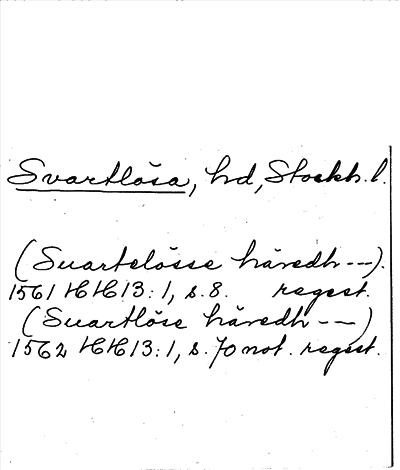 Svartlösa, hd, Stockh. l.
(Suartelösse häredh ---).
1561 HH 13:1, s. 8. regest.
(Suartlöse häredh ---)
1562 HH 13:1, s. 70 not. regest.